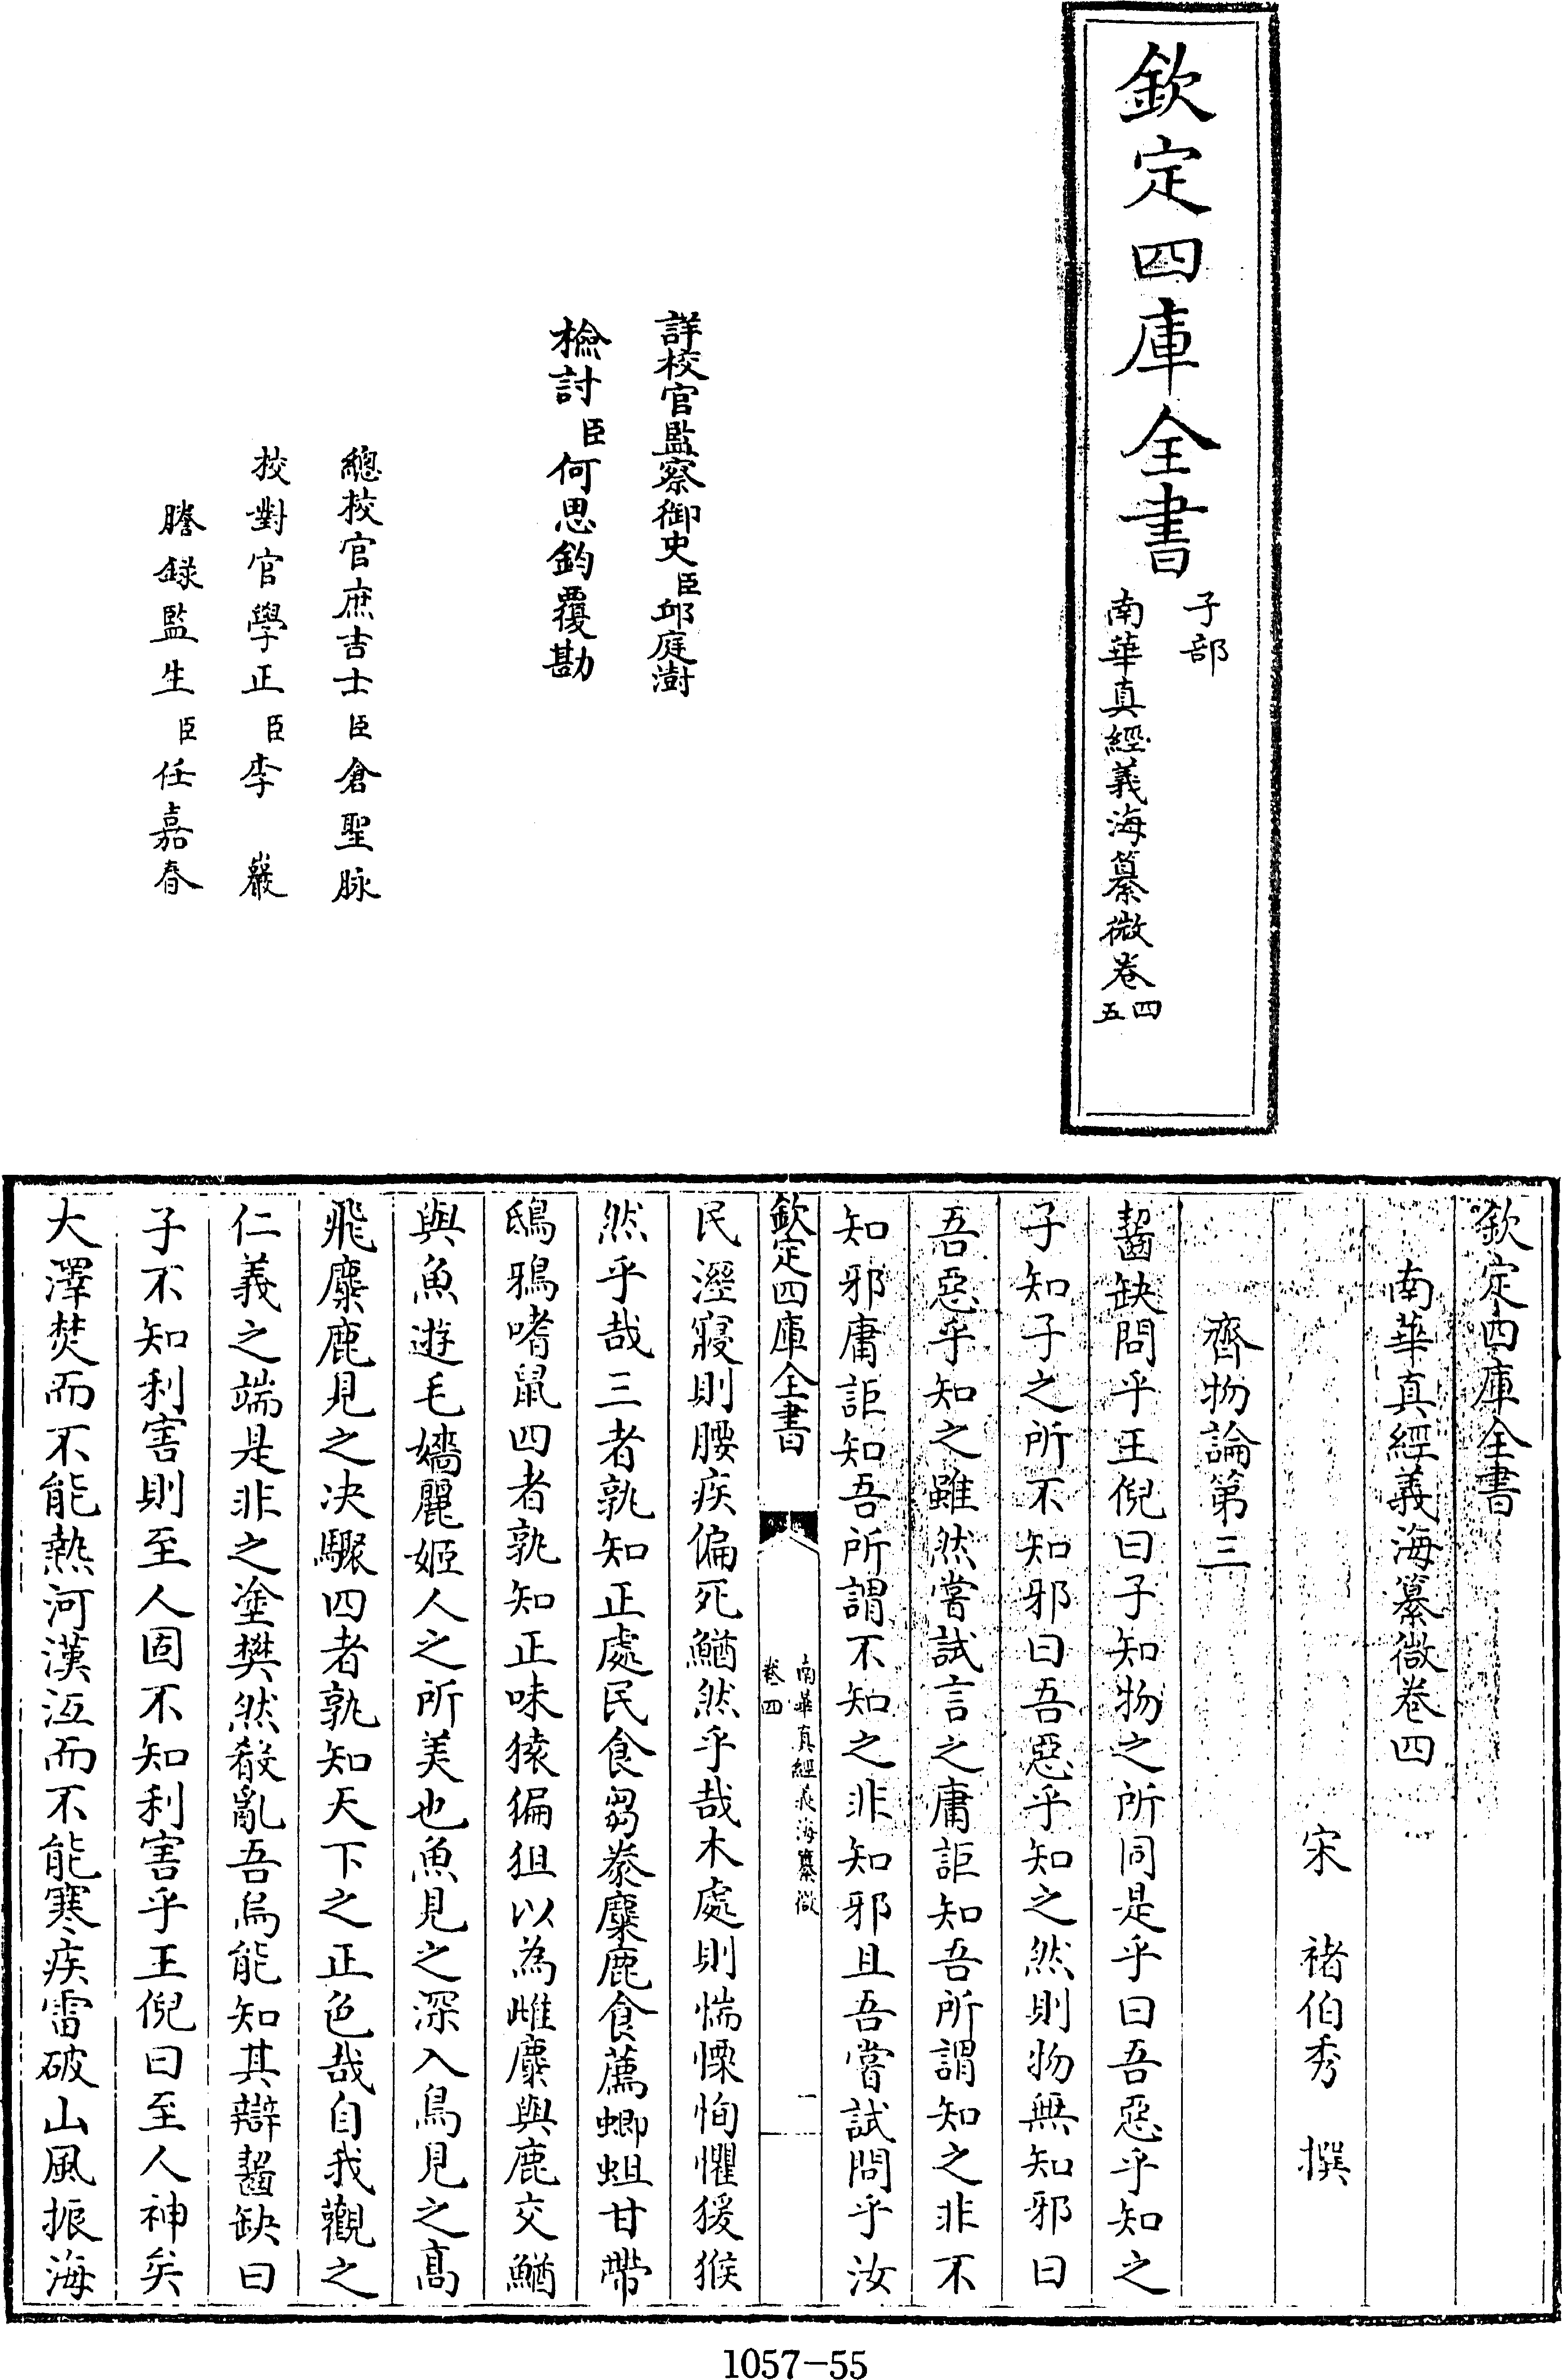 欽定四庫全書
子部
南華真經義海纂微卷四
五
詳校官監察御史臣邱庭澍
檢討臣何思鈞覆勘
總校官庶吉士臣倉聖脉
校對官學正臣李巖
謄錄監生臣任嘉春
欽定四庫全書
南華真經義海纂微卷四
宋 褚伯秀 撰
齊物論第三
齧缺問乎王倪曰子知物之所同是乎曰吾惡乎知之
子知子之所不知邪曰吾惡乎知之然則物無知邪曰
吾惡乎知之雖然嘗試言之庸詎知吾所謂知之非不
知邪庸詎知吾所謂不知之非知邪且吾嘗試問乎汝
欽定四庫全書
南華真經義海纂微
卷四
一
民溼寢則腰疾偏死鰌然乎哉木處則惴慄恂懼猨猴
然乎哉三者孰知正處民食芻豢麋鹿食薦蝍蛆甘帶
鴟鴉嗜鼠四者孰知正味猿猵狙以為雌麋與鹿交鰌
與魚遊毛嬙麗姬人之所美也魚見之深入鳥見之高
飛麋鹿見之决驟四者孰知天下之正色哉自我觀之
仁義之端是非之塗樊然殽亂吾烏能知其辯齧缺曰
子不知利害則至人固不知利害乎王倪曰至人神矣
大澤焚而不能熱河漢沍而不能寒疾雷破山風振海
1057-55